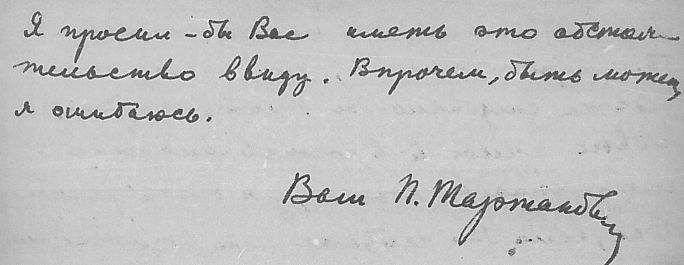 Я просил-бы Вас иметь это обстоя-
тельство ввиду. Впрочем, быть может,
я ошибаюсь.
Ваш П.